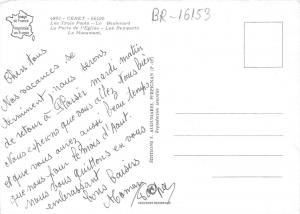 Image de France
4092 - CERET - 66400
Les Trois Ponts - Le Boulevard
La Porte de l'Eglise - Les Remparts
Le Monument.
BR-16153
Chers Tous
Nos vacances se
terminent, nous serons
de retour à mardi matin
Nous espérons que vous allez tous bien
et que vous aurez aussi beau temps
que nous pour le mois d'Aout.
Nous vous quittons en vous
embrassant
Bons Baisers
Maman
PERPIGNAN
Reproduction interdite